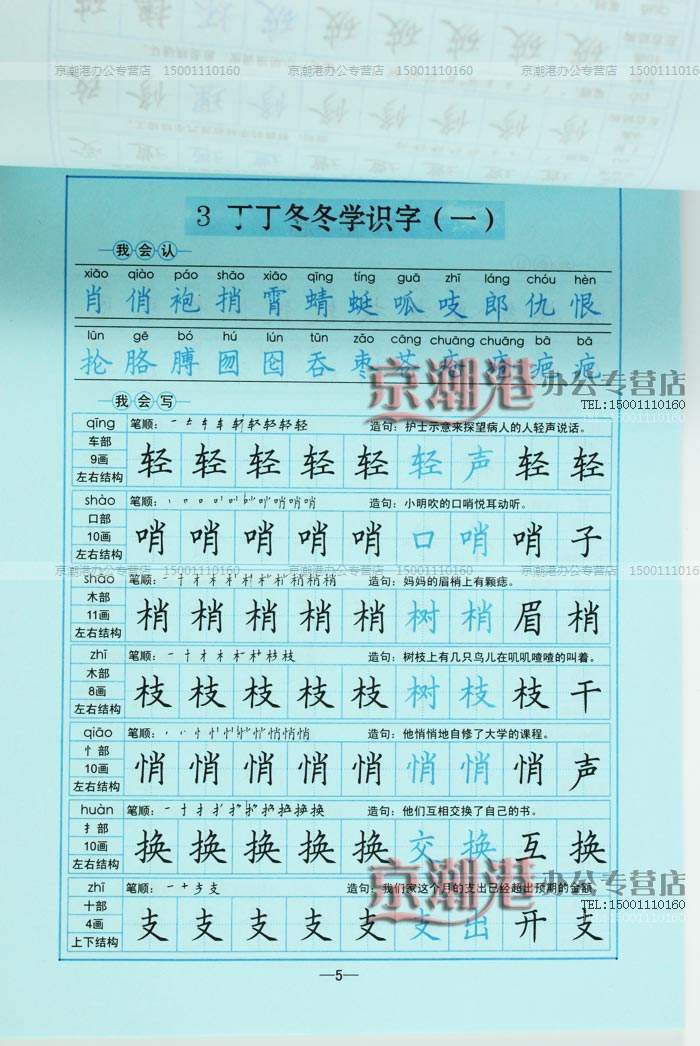 京潮港办公专营店 15001110160 京潮港办公专营店 15001110160 京潮港办公专营店 15001110160
3 丁丁冬冬学识字(一)
我会认
xiāo qiào páo shāo xiāo qīng tíng guā zhī láng chóu hèn
肖 俏 袍 捎 霄 蜻 蜓 呱 吱 郎 仇 恨
lūn gē bó hú lún tūn zǎo cāng chuāng chuāng bā bā
抡 胳 膊 囫 囵 吞 枣 苍 疮 疮 疤 疤
京潮港 办公专营店
TEL:15001110160
我会写
qīng 笔顺: 造句:护士示意来探望病人的人轻声说话。
车部
9画
左右结构
轻 轻 轻 轻 轻 轻 声 轻 轻
shào 笔顺: 造句:小明吹的口哨悦耳动听。
口部
10画
左右结构
哨 哨 哨 哨 哨 口 哨 哨 子
京潮港办公专营店 15001110160 京潮港办公专营店 15001110160 京潮港办公专营店 15001110160
shāo 笔顺: 造句:妈妈的眉梢上有颗痣。
木部
11画
左右结构
梢 梢 梢 梢 梢 树 梢 眉 梢
zhī 笔顺: 造句:树枝上有几只鸟儿在叽叽喳喳的叫着。
木部
8画
左右结构
枝 枝 枝 枝 枝 树 枝 枝 干
qiāo 笔顺: 造句:他悄悄地自修了大学的课程。
忄部
10画
左右结构
悄 悄 悄 悄 悄 悄 悄 悄 声
huàn 笔顺: 造句:他们互相交换了自己的书。
扌部
10画
左右结构
换 换 换 换 换 交 换 互 换
京潮港 办公专营店
TEL:15001110160
zhī 笔顺: 造句:我们家这个月的支出已经超出预期的金额
十部
4画
上下结构
支 支 支 支 支 支 出 开 支
—5—